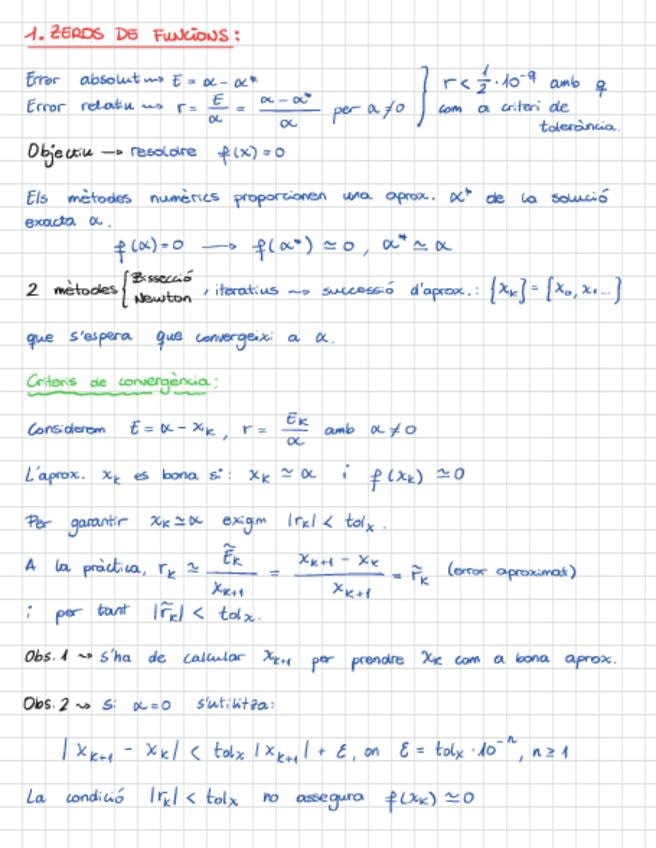 1. ZEROS DE FUNCIONS:
Error absolut ⇝ E = α - α*
Error relatiu ⇝ r = E/α = (α - α*)/α per α ≠ 0 } r < 1/2 · 10^-q amb q com a criteri de tolerància.
Objectiu → resoldre f(x) = 0
Els mètodes numèrics proporcionen una aprox. α* de la solució
exacta α.
f(α) = 0 → f(α*) ≃ 0, α* ≃ α
2 mètodes { Bissecció Newton , iteratius ⇝ successió d'aprox.: {x_k} = {x_0, x_1...}
que s'espera que convergeixi a α.
Criteris de convergència:
Considerem E = α - x_k, r = E_k/α amb α ≠ 0
L'aprox. x_k es bona si: x_k ≃ α i f(x_k) ≃ 0
Per garantir x_k ≃ α exigim |r_k| < tol_x.
A la pràctica, r_k ≃ Ẽ_k/x_{k+1} = (x_{k+1} - x_k)/x_{k+1} = r̃_k (error aproximat)
i per tant |r̃_k| < tol_x.
Obs. 1 ⇝ s'ha de calcular x_{k+1} per prendre x_k com a bona aprox.
Obs. 2 ⇝ Si α = 0 s'utilitza:
|x_{k+1} - x_k| < tol_x |x_{k+1}| + ε, on ε = tol_x · 10^-n, n ≥ 1
La condició |r_k| < tol_x no assegura f(x_k) ≃ 0